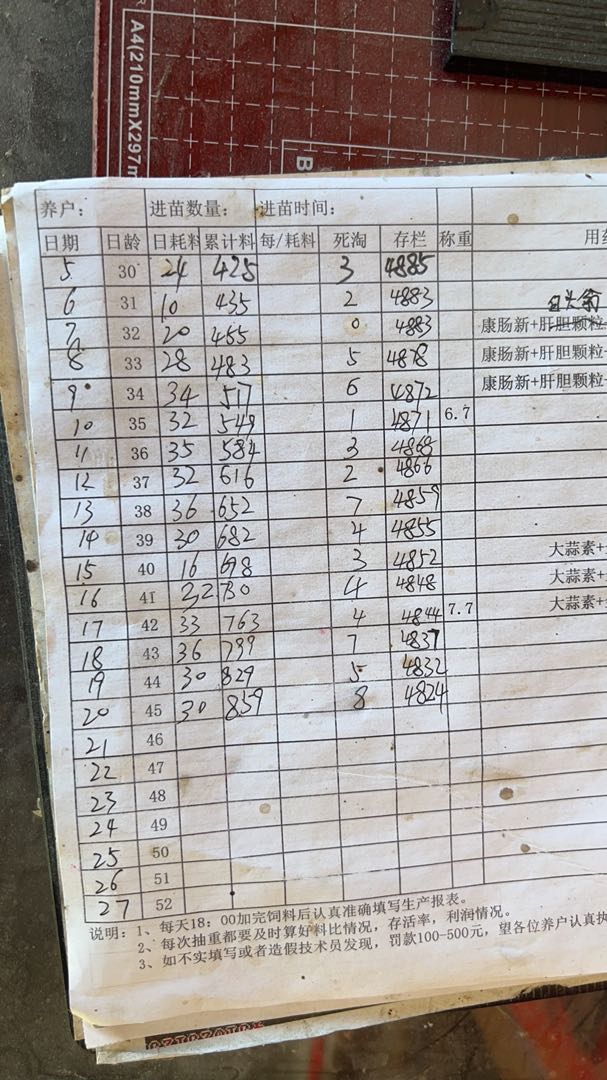 A4(210mmX297m
B
养户： 进苗数量： 进苗时间：
日期 日龄 日耗料 累计料 每/耗料 死淘 存栏 称重 用药
5 30 24 425 3 4885
6 31 10 435 2 4883
7 32 20 455 0 4883 康肠新+肝胆颗粒
8 33 28 483 5 4878 康肠新+肝胆颗粒
9 34 34 517 6 4872 康肠新+肝胆颗粒
10 35 32 549 1 4871 6.7
11 36 35 584 3 4868
12 37 32 616 2 4866
13 38 36 652 7 4859
14 39 30 682 4 4855
15 40 16 698 3 4852 大蒜素+
16 41 32 730 4 4848 大蒜素+
17 42 33 763 4 4844 7.7 大蒜素+
18 43 36 799 7 4837
19 44 30 829 5 4832
20 45 30 859 8 4824
21 46
22 47
23 48
24 49
25 50
26 51
27 52
说明：1、每天18：00加完饲料后认真准确填写生产报表。
2、每次抽重都要及时算好料比情况，存活率，利润情况。
3、如不实填写或者造假技术员发现，罚款100-500元，望各位养户认真执